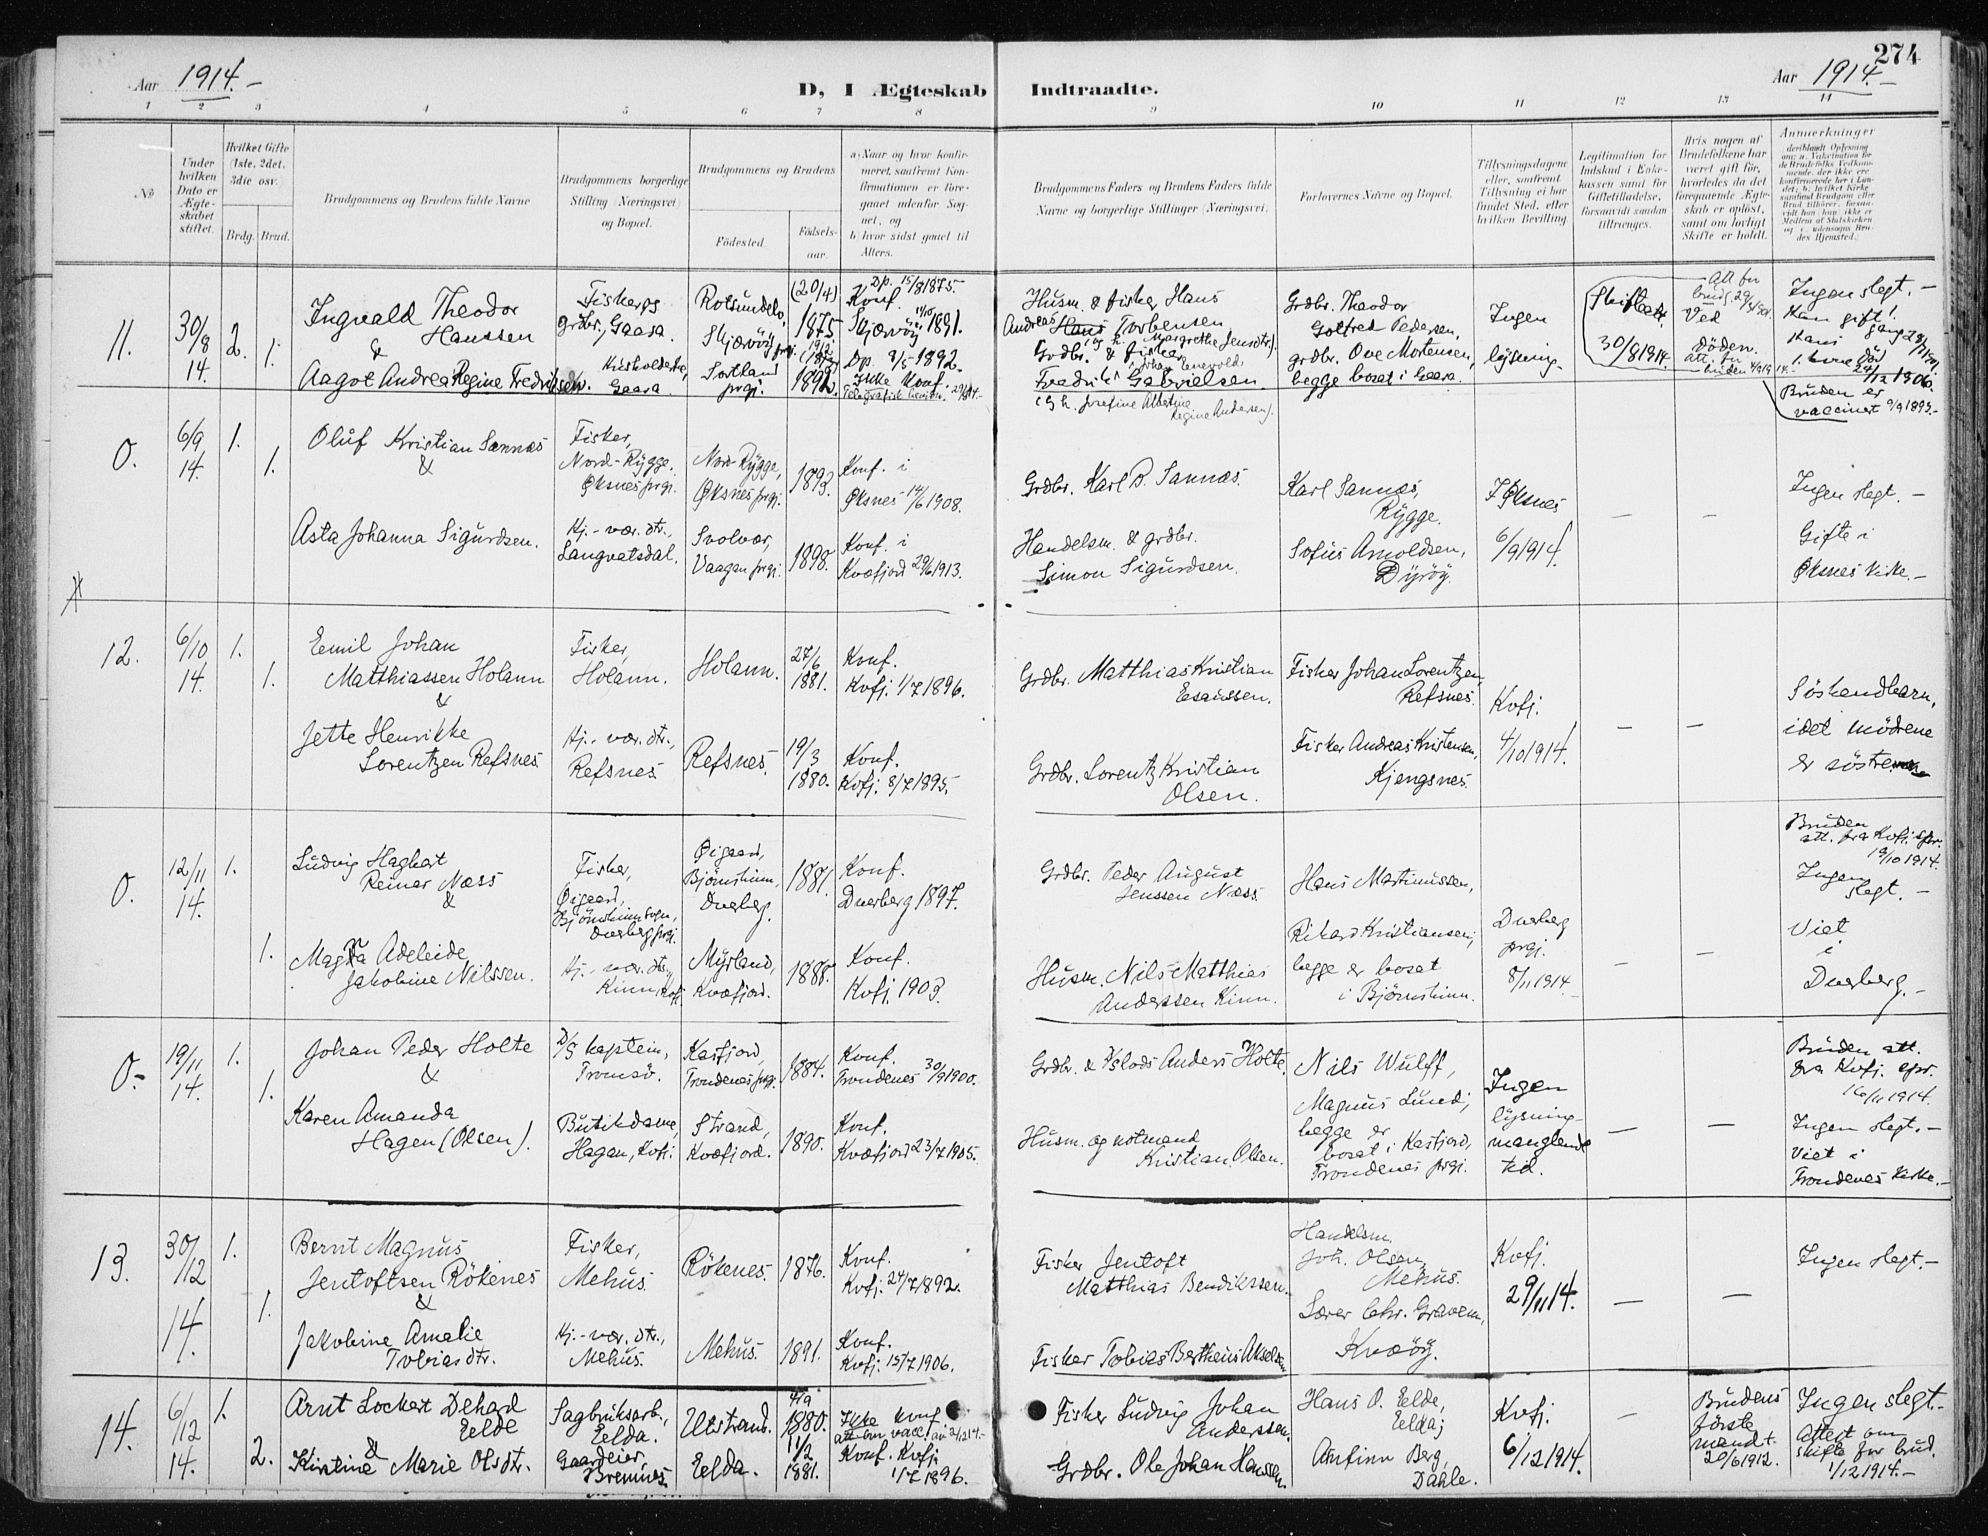 274
Aar 1914.-
D, I Ægteskab Indtraadte.
Aar 1914.-
1 2 3 4 5 6 7 8 9 10 11 12 13 14
No
Under hvilken Dato er Ægteskabet stiftet.
Hvilket Gifte (1ste, 2det, 3die osv.
Brdg. Brud.
Brudgommens og Brudens fulde Navne
Brudgommens borgerlige Stilling (Næringsvei) og Bopæl.
Brudgommens og Brudens
Fødested.
Fødselsaar.
a. Naar og hvor konfirmeret, saafremt Konfirmationen er foregaaet udenfor Sognet, og
b. hvor sidst gaaet til Alters.
Brudgommens Faders og Brudens Faders fulde Navne og borgerlige Stillinger (Næringsvei).
Forlovernes Navne og Bopæl.
Tillysningsdagene eller, saafremt Tillysning ei har fundet Sted, efter hvilken Bevilling
Legitimation for Indskud i Enkekassen samt for Giftetilladelse, forsaavidt saadan tiltrænges.
Hvis nogen af Brudefolkene har været gift før, hvorledes da det foregaaende Ægteskab er opløst, samt om lovligt Skifte er holdt.
Anmerkninger
11. 30/8 14. 2. 1.
Ingvald Theodor
Hanssen
&
Aagot Andrea Regine Fredriksen.
Fisker og
grdbr, Gaasa.
Husholderske,
Gaasa.
Rotsundelv,
Skjærvöy prgj.
Sortland
prgj.
(20/4)
1875
1892.
Dp. 15/8 1875.
Konf.
Skjærvöy 1891.
Dp. 8/5 1892.
Ikke Konf.
Husm. & fisker Hans
Andreas Torbensen
Grdbr. & fisker
Fredrik Gabrielsen
Grdbr. Theodor
Gotfred Pedersen,
grdbr. Ove Mortensen,
begge bosat i Gaasa.
Ingen
lysning.
Skifteatt.
30/8 1914.
Ved
döden.
Ingen slegt. -
1906.
Bruden er
vaccinert 9/9 1895.-
0. 6/9 14. 1. 1.
Oluf Kristian Sannæs
&
Asta Johanna Sigurdsen.
Fisker,
Nord-Rygge,
Øksnes prgj.
Hj.- vær. dtr.,
Langvatsdal.
Nord-Rygge,
Øksnes prgj.
Svolvær,
Vaagan prgj.
1893.
1898.
Konf. i
Øksnes 14/6 1908.
Konf. i
Kvæfjord 29/6 1913.
Grdbr. Karl B. Sannæs.
Handelsm. & grdbr.
Simon Sigurdsen.
Karl Sannæs,
Rygge.
Sofus Arnoldsen,
Dyröy.
I Øksnes
6/9 1914.
Ingen slegt. -
Gifte i
Øksnes kirke.-
12. 6/10 14. 1. 1.
Emil Johan
Matthiassen Holann
&
Jette Henrikke
Lorentzen Refsnes
Fisker,
Holann.
Hj.- vær. dtr.,
Refsnes
Holann.
Refsnes.
27/6
1881.
19/3
1880.
Konf.
Kvfj. 1/7 1896.
Konf.
Kvfj. 8/7 1895.
Grdbr. Matthias Kristian
Esaiassen.
Grdbr. Lorentz Kristian
Olsen.
Fisker Johan Lorentzen,
Refsnes.
Fisker Andreas Kristensen,
Kjengsnes.
Kvfj.
4/10 1914.
Söskendbarn,
idet mödrene
er söstre
0. 12/11 14. 1. 1.
Ludvig Hagbart
Reinar Næss
&
Magna Adeleide
Jakobine Nilssen.
Fisker,
Öigaard,
Björnskinn sogn,
Dverberg prgj.
Hj.- vær. dtr.,
Kinn, Kvfj.
Öigaard,
Björnskinn,
Dverberg.
Myrland,
Kvæfjord.
1881.
1888.
Konf.
Dverberg 1897.
Konf.
Kvfj. 1903.
Grdbr. Peder August
Jenssen Næss.
Husm. Nils Matthias
Anderssen Kinn.
Hans Martinussen,
Rikard Kristiansen,
begge er bosat
i Björnskinn.
Dverberg
prgj.
8/11 1914.
Bruden
att. fra Kvfj. spr.
19/10 1914.
Ingen
slegt. -
Viet
i
Dverberg.-
0.- 19/11 14. 1. 1.
Johan Peder Holte
&
Karen Amanda
Hagen (Olsen).
D/S kaptein,
Tromsö.
Butikdame,
Hagan, Kvfj.
Kasfjord,
Trondenes prgj.
Strand,
Kvæfjord.
1884.
1890.
Konf.
Trondenes 30/9 1900.
Konf.
Kvæfjord 23/7 1905.
Grdbr. & Anders Holte.
Husm. og notmand
Kristian Olsen.
Nils Wulff,
Magnus Lund,
begge er
bosat i Kasfjord,
Trondenes prgj.
Ingen
lysning-
manglende
tid.
Bruden att.
fra Kvfj. spr.
16/11 1914.
Ingen slegt.-
Viet i
Trondenes kirke.-
13. 30/12 14. 1. 1.
Bernt Magnus
Jentoftsen Rökenes
&
Jakobine Amalie
Tobiasdtr.
Fisker,
Mehus.
Hj.- vær. dtr.,
Mehus.
Rökenes.
Mehus.
1876.
1891.
Konf.
Kvfj. 24/7 1892.
Konf.
Kvfj. 15/7 1906.
Fisker Jentoft
Matthias Bendikssen.
Fisker Tobias Bertheus Akselsen
Handelsm.
Joh. Olsen,
Mehus.
Lærer Gravem,
Kvæöy.
Kvfj.
29/11 14.
Ingen slegt.-
14. 6/12 14. 1. 2.
Arnt Lockert Dehard
Eelde
&
Kirstine Marie Olsdtr.
Sagbruksarb.,
Eelda.
Gaardeier,
Bremnes.
Utstrand.
Eelda.
4/9
1880.
11/2
1881.
Ikke konf.
Konf. Kvfj.
1/7 1896.
Fisker Ludvig Johan
Anderssen.
Grdbr. Ole Johan Hanssen
Hans O. Eelde,
Eelda;
Arnfinn Berg,
Dahle.
Kvfj.
6/12 1914.
Brudens
förste
mand †.
20/6 1912.
Ingen slegt.-
Attest om
skifte for brud.
1/12 1914.-